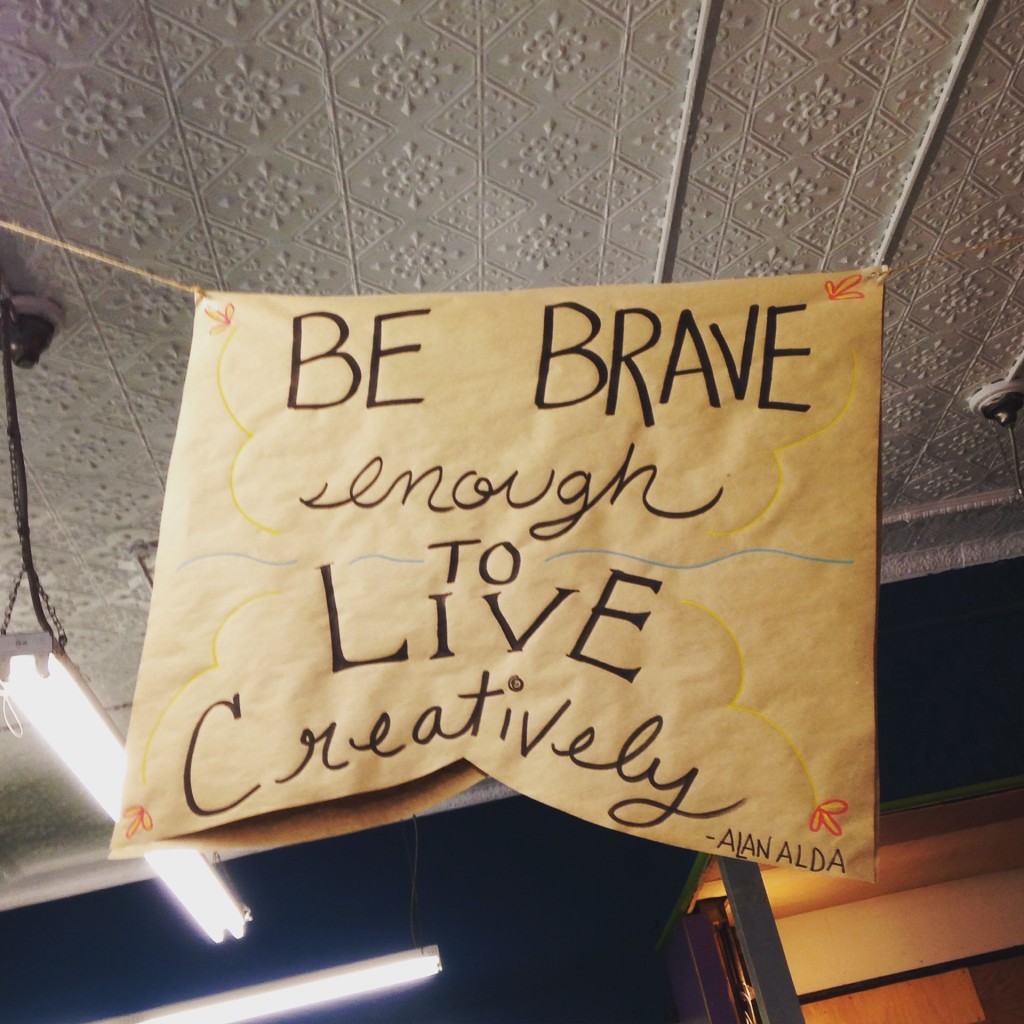 BE BRAVE
enough
TO
LIVE
Creatively
-ALAN ALDA